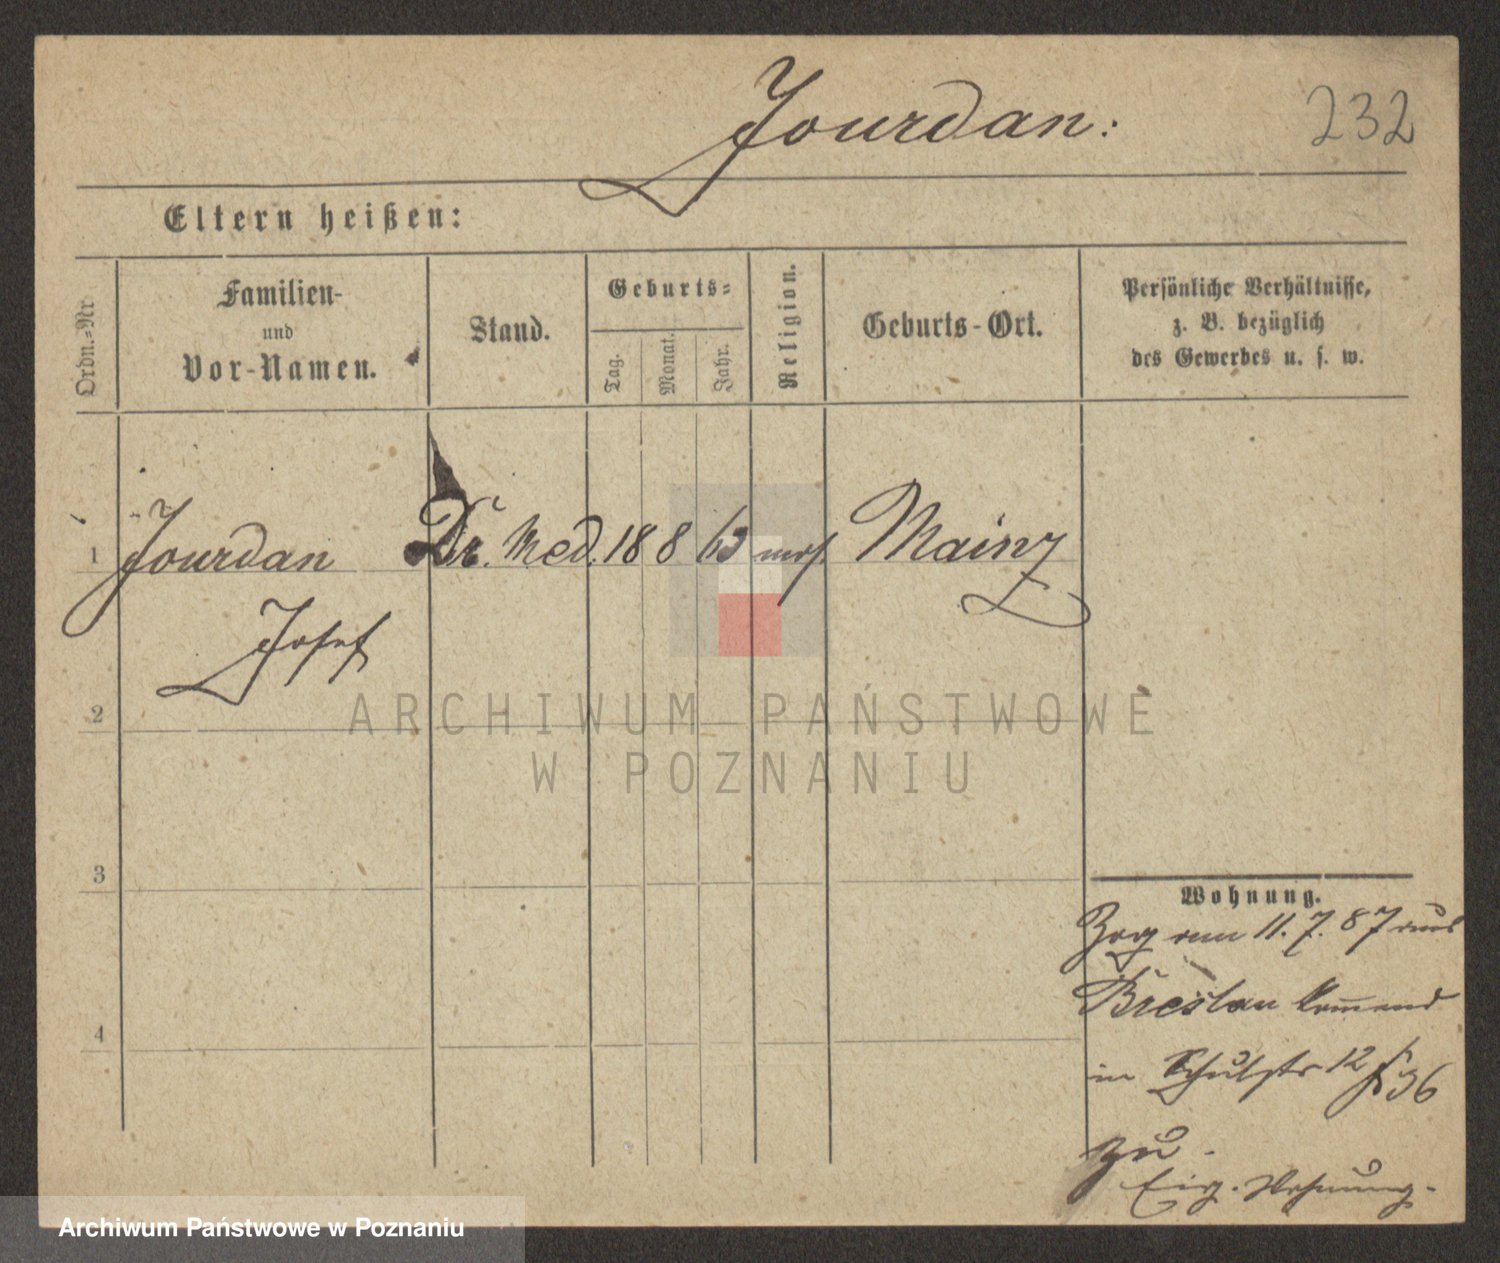 Jourdan:
232
Eltern heißen:
Ordn.-Nr
Familien-
und
Vor-Namen.
Stand.
Geburts-
Tag.
Monat.
Jahr.
Religion.
Geburts-Ort.
Persönliche Verhältnisse,
z. B. bezüglich
des Gewerbes u. s. w.
1 Jourdan Dr. Med. 18 8 63 mos. Mainz
Josef
2
3
4
Wohnung.
Zog am 11. 7. 87 aus
Breslau komend
in Schulstr 12
zu.
Eig. Wohnung.
ARCHIWUM PAŃSTWOWE
W POZNANIU
Archiwum Państwowe w Poznaniu